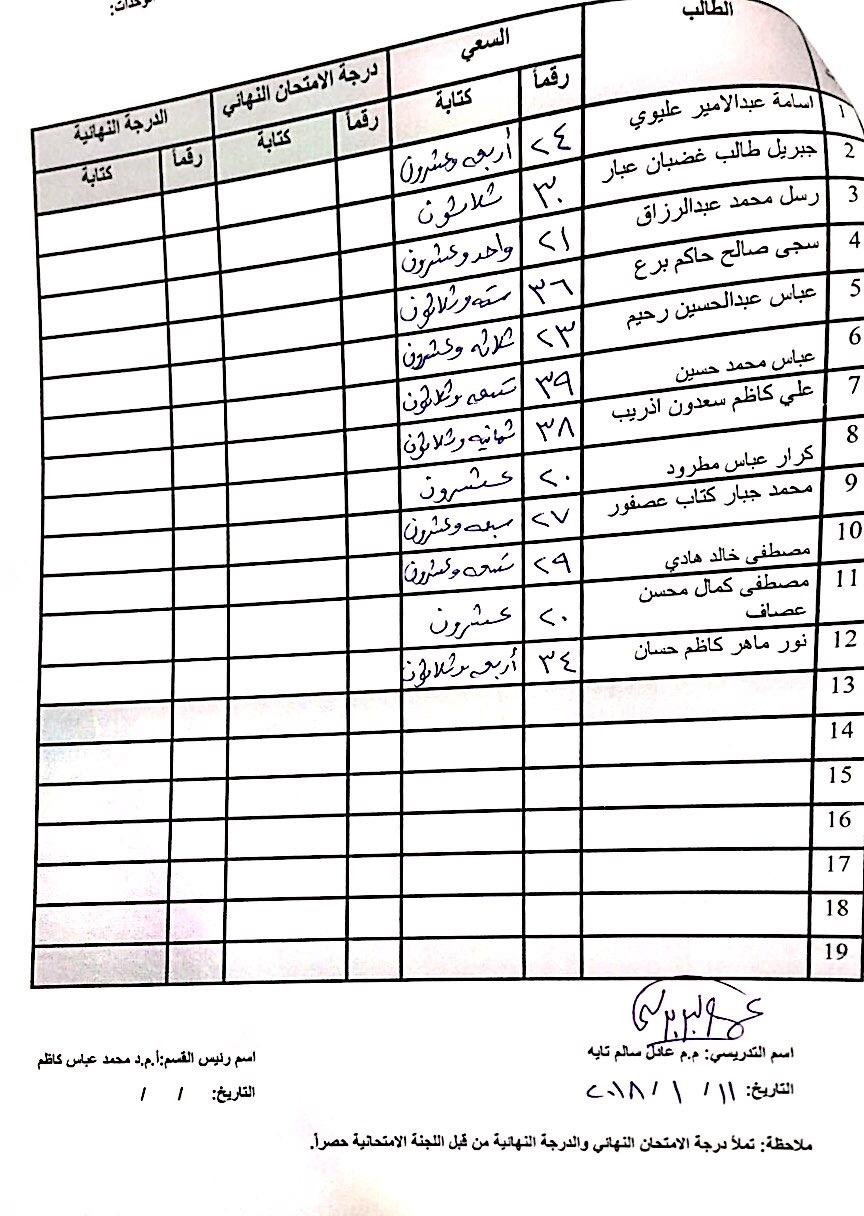 الوحدات:
الطالب السعي درجة الامتحان النهائي الدرجة النهائية
رقمأ كتابة رقمأ كتابة رقمأ كتابة
1 اسامة عبدالامير عليوي ٢٤ أربعه وعشرون
2 جبريل طالب غضبان عبار ٣٠ ثلاثون
3 رسل محمد عبدالرزاق ٢١ واحد وعشرون
4 سجى صالح حاكم برع ٣٦ سته وثلاثون
5 عباس عبدالحسين رحيم ٢٣ ثلاثه وعشرون
6 عباس محمد حسين ٣٩ تسعه وثلاثون
7 علي كاظم سعدون اذريب ٣٨ ثمانيه وثلاثون
8 كرار عباس مطرود ٢٠ عشرون
9 محمد جبار كتاب عصفور ٢٧ سبعه وعشرون
10 مصطفى خالد هادي ٢٩ تسعه وعشرون
11 مصطفى كمال محسن عصاف ٢٠ عشرون
12 نور ماهر كاظم حسان ٣٤ أربعه وثلاثون
13
14
15
16
17
18
19
اسم التدريسي: م.م عادل سالم تايه اسم رئيس القسم:أ.م.د محمد عباس كاظم
التاريخ: ١١ / ١ / ٢٠١٨ التاريخ: / /
ملاحظة: تملأ درجة الامتحان النهائي والدرجة النهائية من قبل اللجنة الامتحانية حصراً.